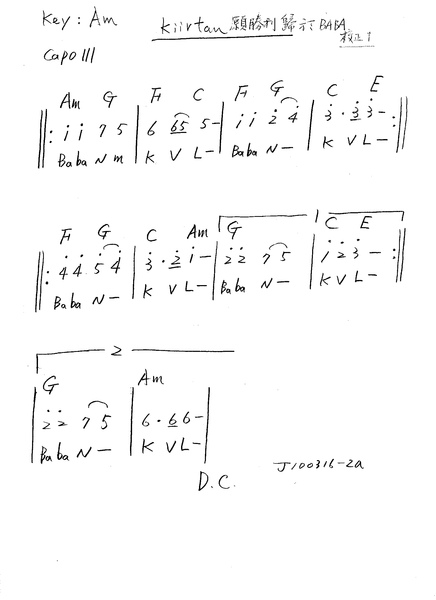 Key: Am Kiirtan 願勝利歸於BABA
校正1
Capo III
Am G F C F G C E
||: i i 7 5 | 6 65 5- | i i 2 4 | 3 · 3 3 - :||
Baba N m K V L - Baba N - K V L -
F G C Am G 1 C E
||: 4 4 5 4 | 3 · 2 i - | 2 2 7 5 | i 2 3 - :||
Baba N - K V L - Baba N - K V L -
2
G Am
| 2 2 7 5 | 6 · 6 6 - |
Baba N - K V L -
D.C. J100316-2a